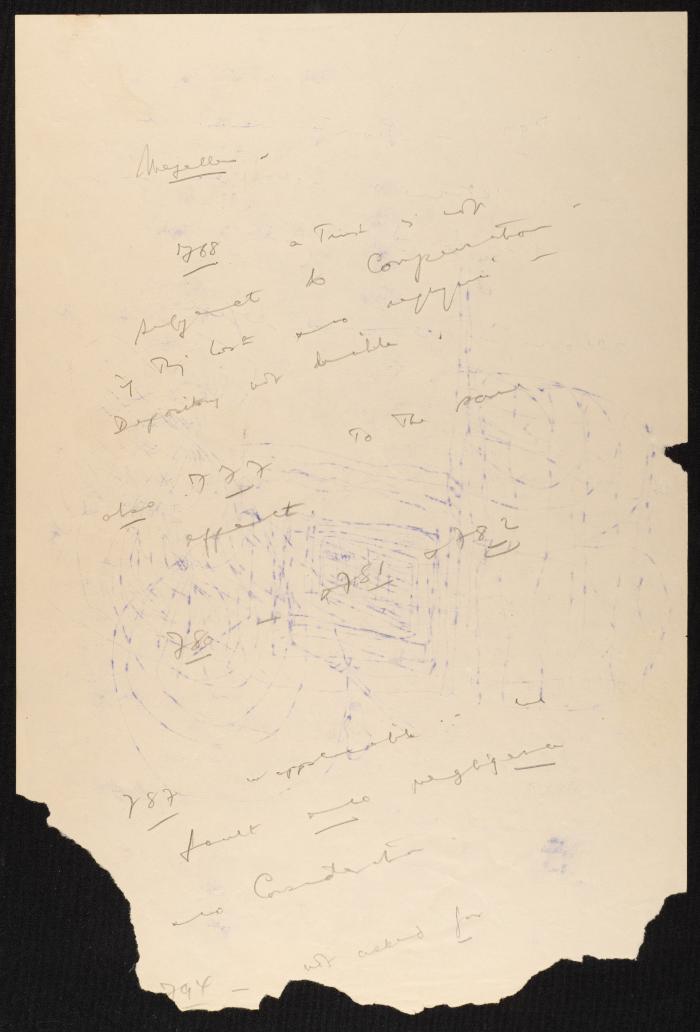 Megelle -
768 a Trust is not
subject to Compensation -
if Thj lost and negligence -
Depository not liable .
To The same
also 777
effect .
780 - 781 782
787 inapplicable :: not
fault and negligence
no Consideration
794 - not asked for